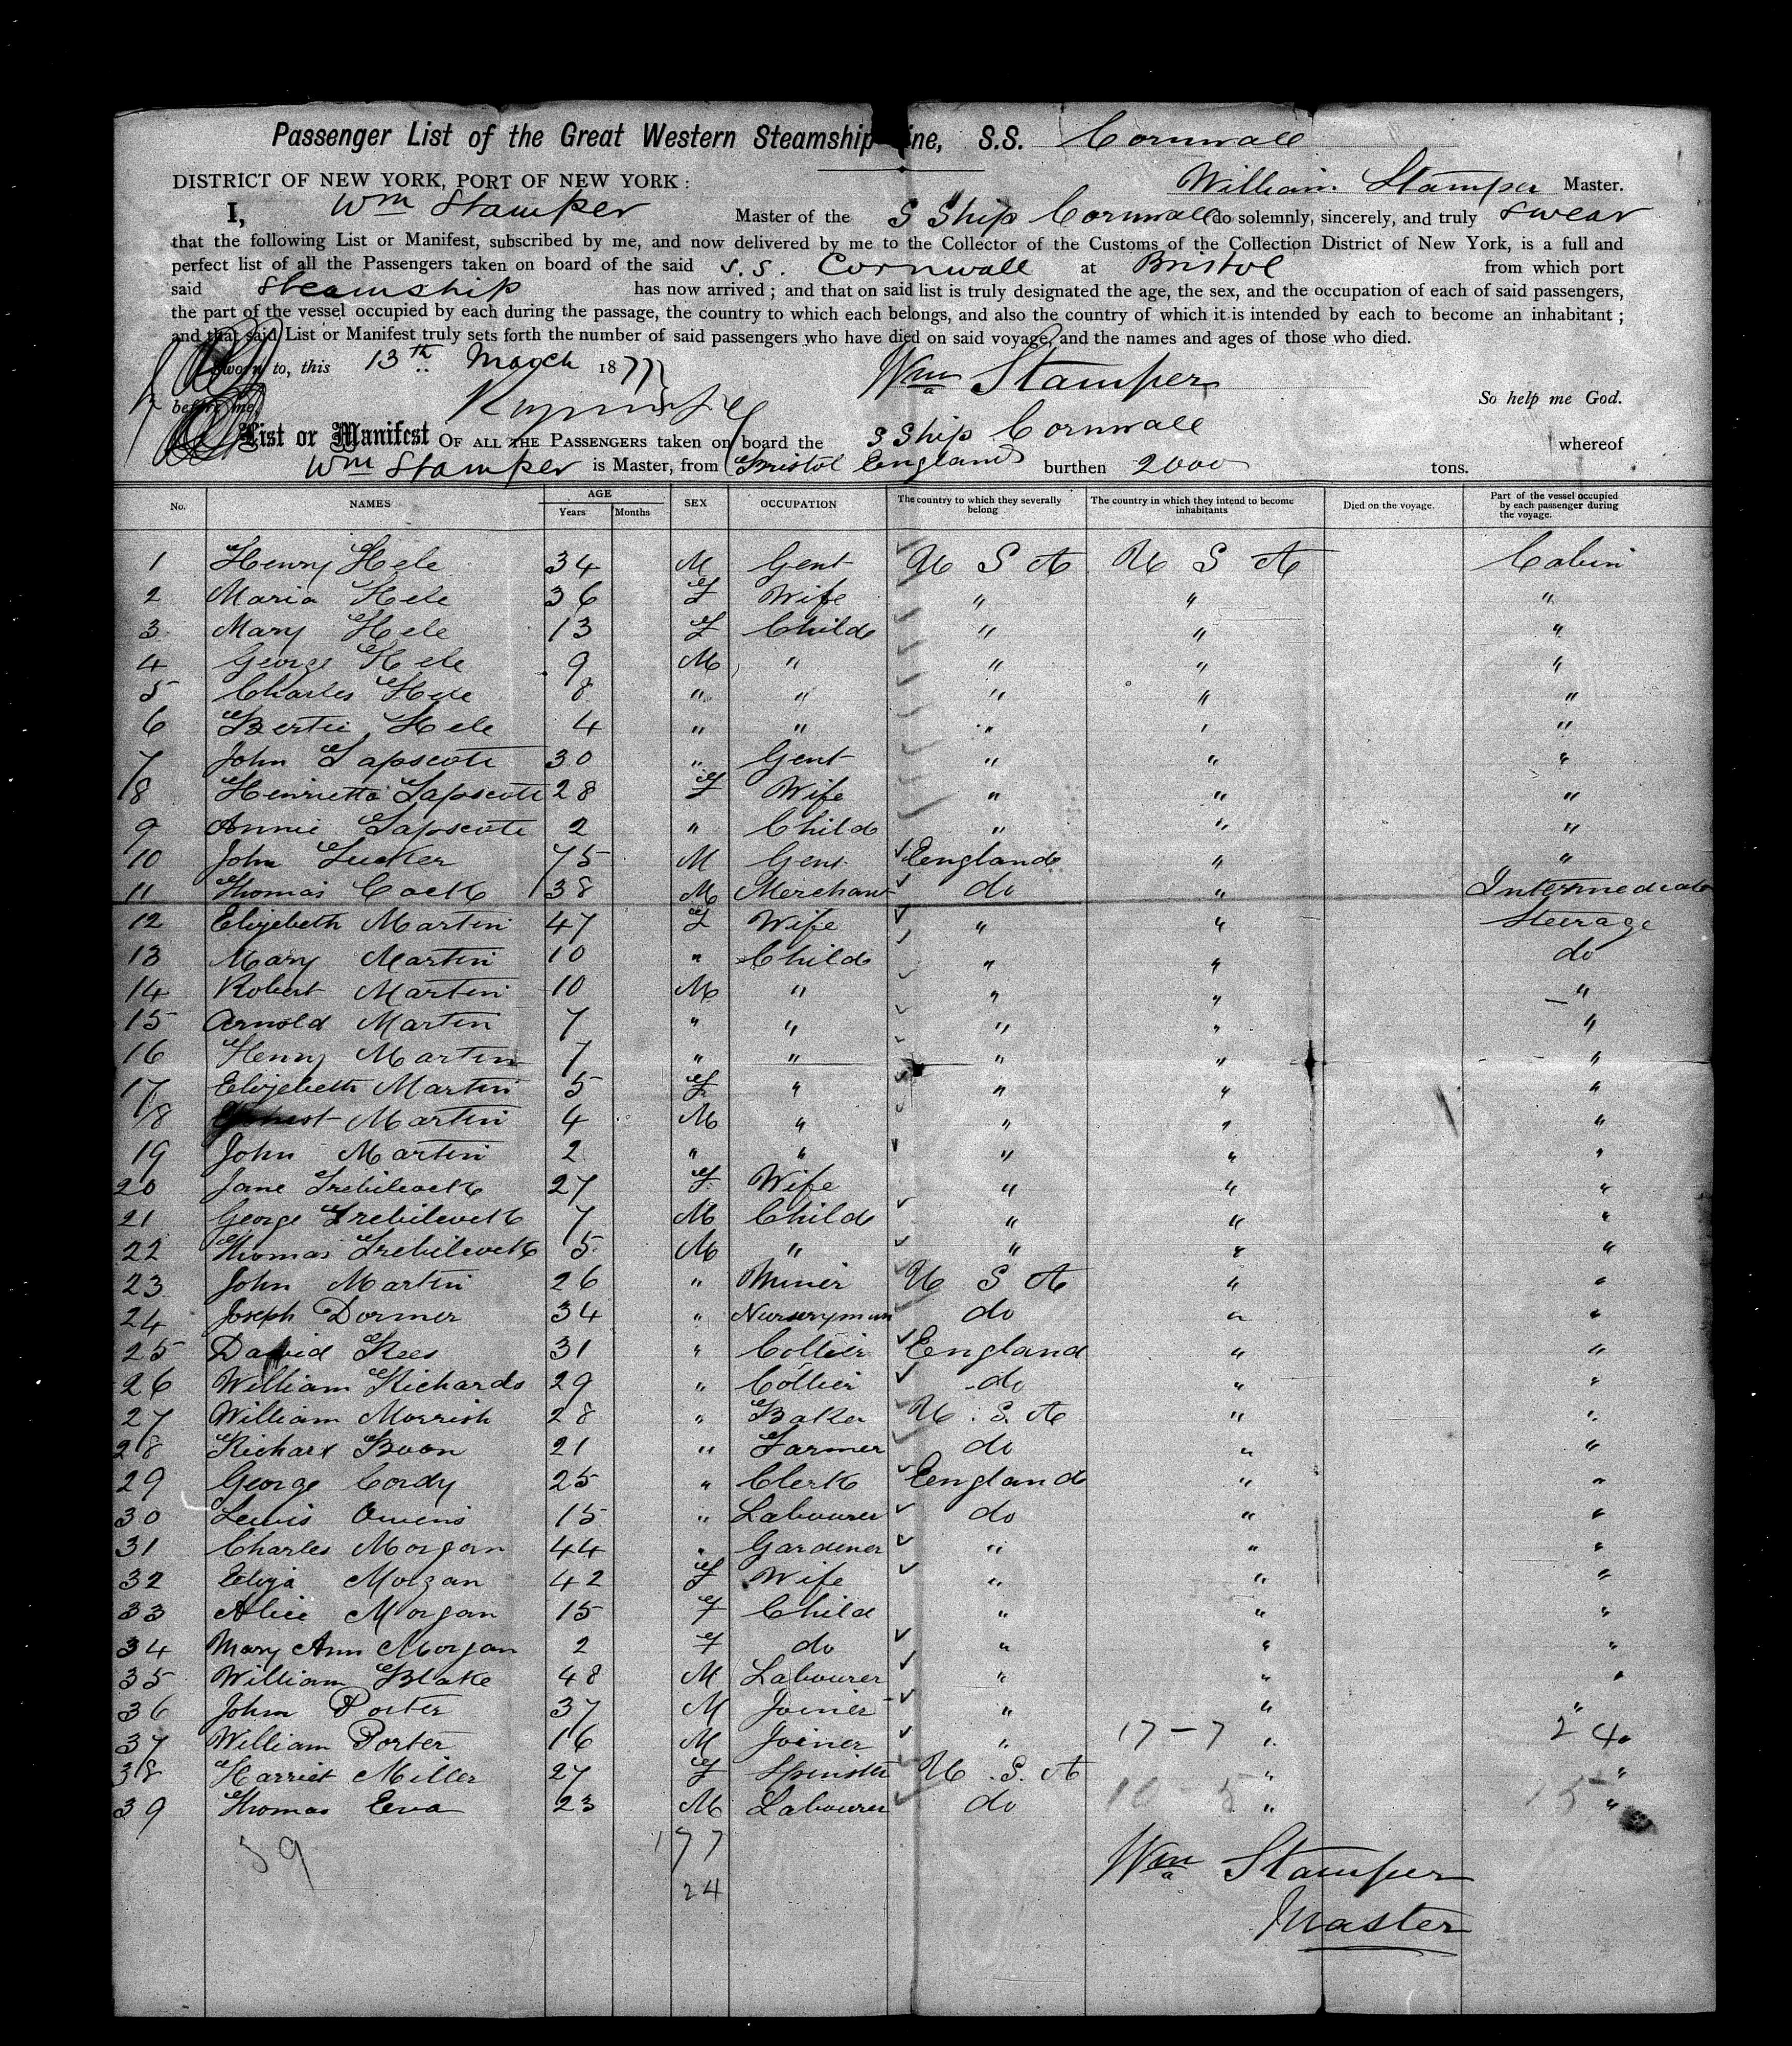 Passenger List of the Great Western Steamship Line, S.S. Cornwall
DISTRICT OF NEW YORK, PORT OF NEW YORK: William Stamper Master.
I, Wm Stamper Master of the S Ship Cornwall do solemnly, sincerely, and truly swear
that the following List or Manifest, subscribed by me, and now delivered by me to the Collector of the Customs of the Collection District of New York, is a full and
perfect list of all the Passengers taken on board of the said S.S. Cornwall at Bristol from which port
said Steamship has now arrived; and that on said list is truly designated the age, the sex, and the occupation of each of said passengers,
the part of the vessel occupied by each during the passage, the country to which each belongs, and also the country of which it is intended by each to become an inhabitant;
and that said List or Manifest truly sets forth the number of said passengers who have died on said voyage, and the names and ages of those who died.
Sworn to, this 13th March 1877 Wm Stamper
before me, So help me God.
List or Manifest OF ALL THE PASSENGERS taken on board the S Ship Cornwall whereof
Wm Stamper is Master, from Bristol England burthen 2000 tons.
No. NAMES AGE Years Months SEX OCCUPATION The country to which they severally belong The country in which they intend to become inhabitants Died on the voyage. Part of the vessel occupied by each passenger during the voyage.
1 Henry Hele 34 M Gent U S A U S A Cabin
2 Maria Hele 36 F Wife " " "
3 Mary Hele 13 F Child " " "
4 George Hele 9 M " " " "
5 Charles Hele 8 " " " " "
6 Bertie Hele 4 " " " " "
7 John Lapscott 30 " Gent " " "
8 Henrietta Lapscott 28 F Wife " " "
9 Annie Lapscott 2 " Child " " "
10 John Tucker 75 M Gent England " "
11 Thomas Cock 38 M Merchant do " Intermediate
12 Elizebeth Martin 47 F Wife " " Steerage
13 Mary Martin 10 " Child " " do
14 Robert Martin 10 M " " " "
15 Arnold Martin 7 " " " " "
16 Henry Martin 7 " " " " "
17 Elizebeth Martin 5 F " " " "
18 Martin 4 M " " " "
19 John Martin 2 " " " " "
20 Jane Trebilcock 27 F Wife " " "
21 George Trebilcock 7 M Child " " "
22 Thomas Trebilcock 5 M " " " "
23 John Martin 26 " Miner U S A " "
24 Joseph Dormer 34 " Nurseryman do " "
25 David Rees 31 " Collier England " "
26 William Richards 29 " Collier do " "
27 William Morrish 28 " Baker U.S.A " "
28 Richard Boon 21 " Farmer do " "
29 George Cordy 25 " Clerk England " "
30 Lewis Owens 15 " Labourer do " "
31 Charles Morgan 44 " Gardener " " "
32 Eliza Morgan 42 F Wife " " "
33 Alice Morgan 15 F Child " " "
34 Mary Ann Morgan 2 F do " " "
35 William Blake 48 M Labourer " " "
36 John Porter 37 M Joiner " " "
37 William Porter 16 M Joiner " 17-7 " 24 "
38 Harriet Miller 27 F Spinster U.S.A " "
39 Thomas Eva 23 M Labourer do 10-5 " 15 "
39 177
24
Wm Stamper
Master